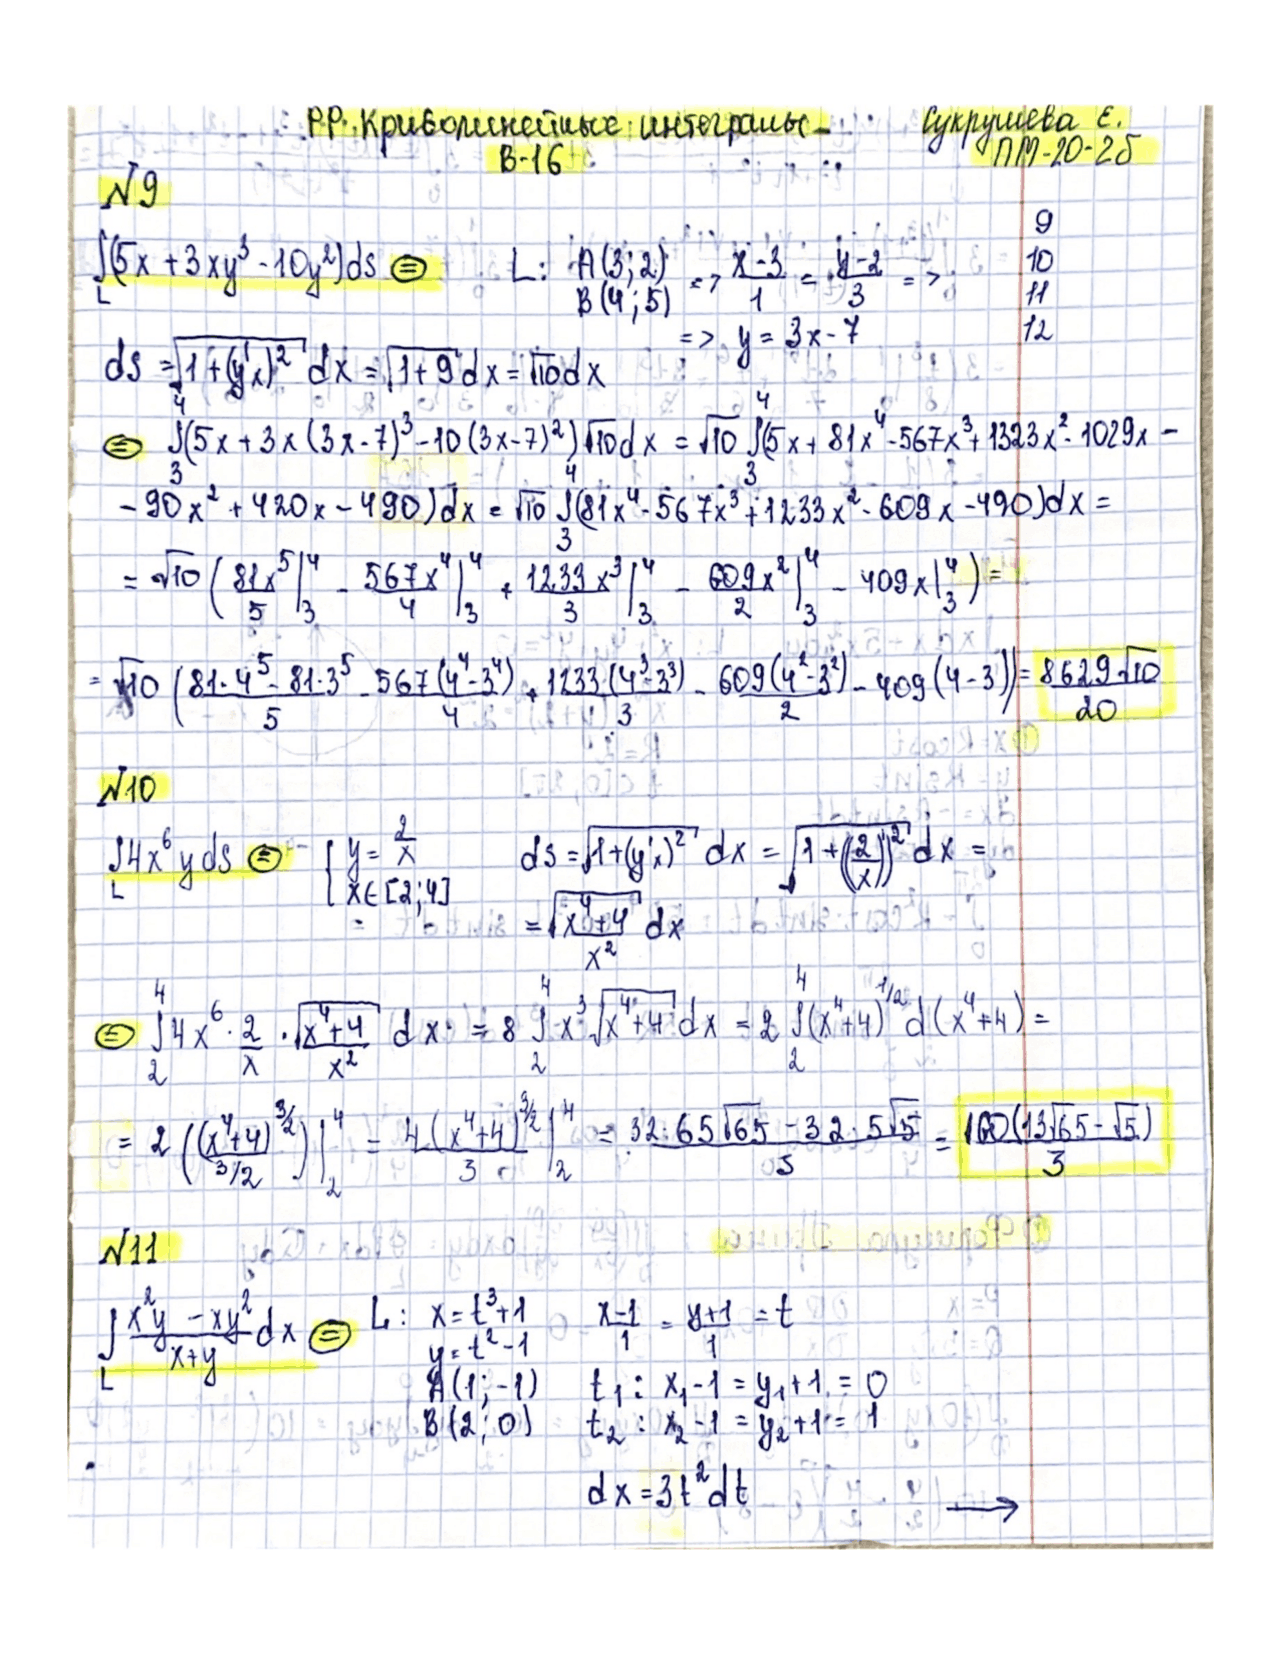 РР. Криволинейные интегралы
Сукрушева Е.
В-16
ПМ-20-2б
№9
9
10
11
12
∫_L (5x + 3xy³ - 10y²)ds ⊜ L: A(3; 2) B(4; 5) => (x-3)/1 = (y-2)/3 =>
=> y = 3x - 7
ds = √(1+(y'x)²) dx = √(1+9) dx = √10 dx
⊜ ∫₃⁴ (5x + 3x(3x-7)³ - 10(3x-7)²)√10 dx = √10 ∫₃⁴ (5x + 81x⁴ - 567x³ + 1323x² - 1029x -
- 90x² + 420x - 490)dx = √10 ∫₃⁴ (81x⁴ - 567x³ + 1233x² - 609x - 490)dx =
= √10 (81x⁵/5 |₃⁴ - 567x⁴/4 |₃⁴ + 1233x³/3 |₃⁴ - 609x²/2 |₃⁴ - 409x |₃⁴) =
= √10 ((81·4⁵ - 81·3⁵)/5 - 567(4⁴-3⁴)/4 + 1233(4³-3³)/3 - 609(4²-3²)/2 - 409(4-3)) = 8629√10/20
№10
∫_L 4x⁶yds ⊜ { y = 2/x x∈[2;4] ds = √(1+(y'x)²) dx = √(1+((2/x)')²) dx =
= √((x⁴+4)/x²) dx
⊜ ∫₂⁴ 4x⁶ · 2/x · √((x⁴+4)/x²) dx = 8 ∫₂⁴ x³√(x⁴+4) dx = 2 ∫₂⁴ (x⁴+4)^(1/2) d(x⁴+4) =
= 2 ((x⁴+4)^(3/2)/(3/2)) |₂⁴ = 4(x⁴+4)^(3/2)/3 |₂⁴ = (32·65√65 - 32·5√5)/3 = 160(13√65-√5)/3
№11
∫_L (x²y - xy²)/(x+y) dx ⊜ L: x = t³+1 (x-1)/1 = (y+1)/1 = t
y = t²-1
A(1; -1) t₁: x₁-1 = y₁+1 = 0
B(2; 0) t₂: x₂-1 = y₂+1 = 1
dx = 3t²dt →